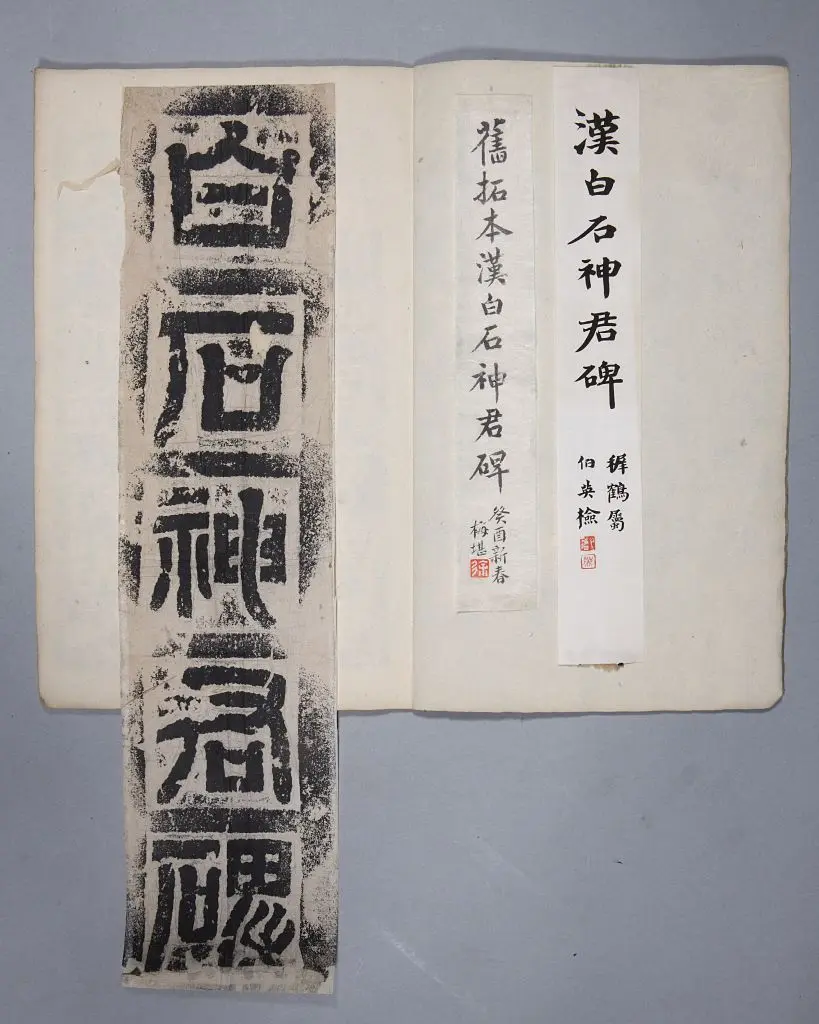 漢白石神君碑
稺鶴屬
伯英檢
舊拓本漢白石神君碑
癸酉新春
梅堪
白石神君碑